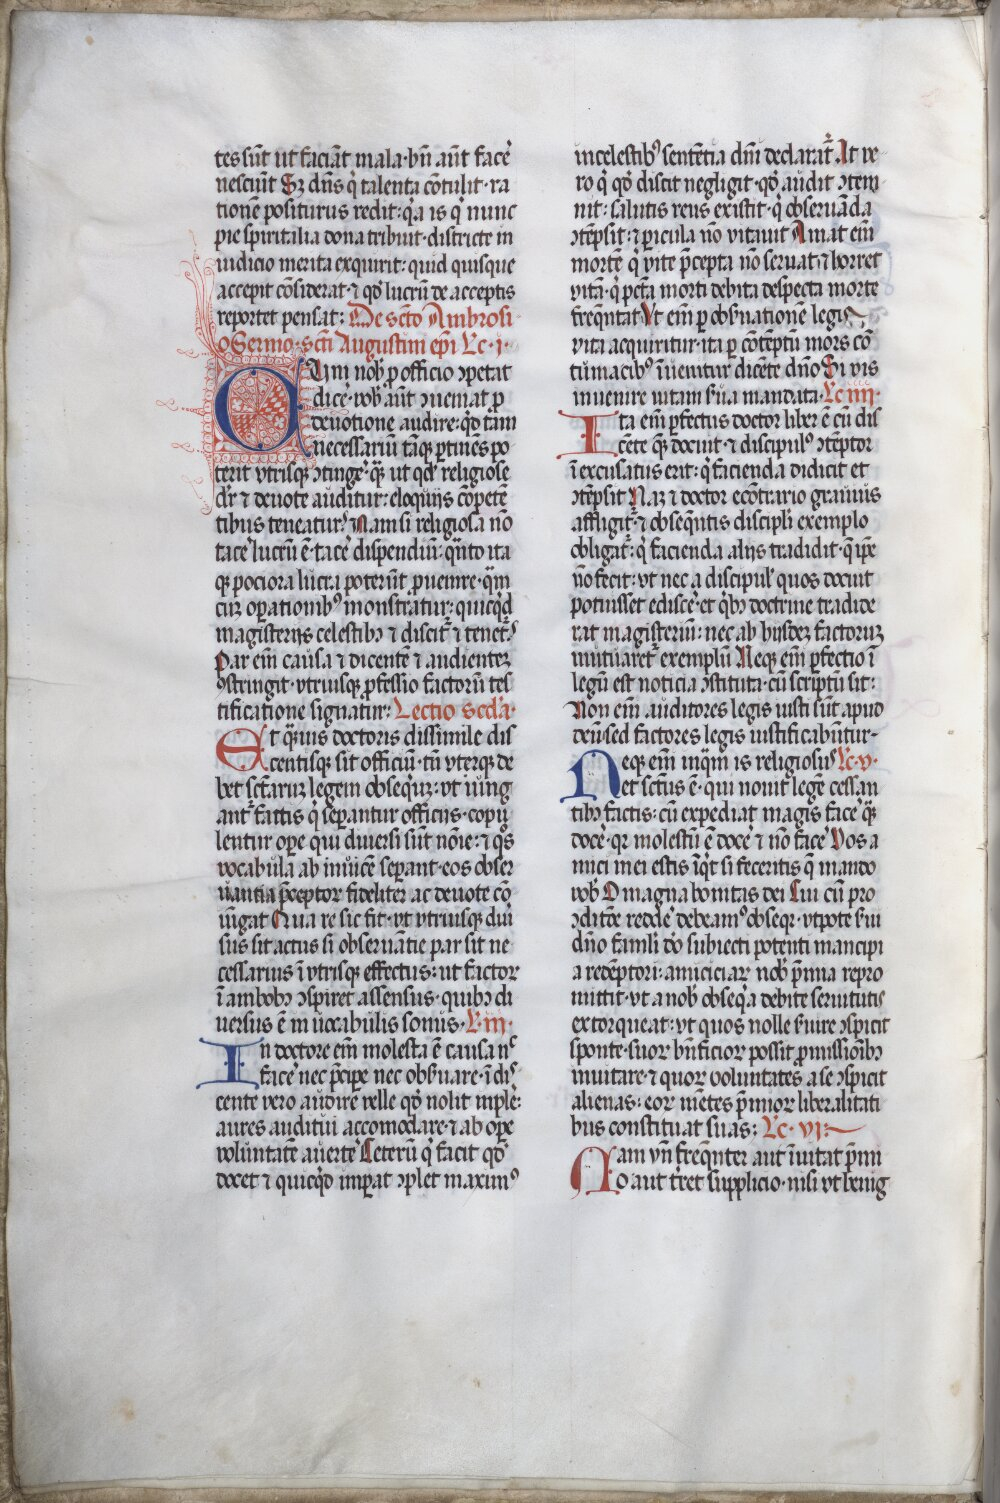 tes sūt ut faciāt mala· bn̄ aūt facē
nesciūt Sꝫ dn̄s q̄ talenta cōtulit· ra
tionē positurus redit: q̄a is q̄ nunc
pie spiritalia dona tribuit· districte in
iudicio merita exquirit: quid quisque
accepit cōsiderat· ⁊ qd̄ lucrū de acceptis
reportet pensat: De scō Ambrosi
o Sermo· scti Augustini ep̄i Lc· i·
Cum nob̄ ꝓ officio ꝯpetat
dicē· vob̄ aūt ꝯueniat ꝓ
deuotione audire: qd̄ tam
necessariū tāqꝫ ꝑtinēs po
terit vtrisqꝫ ꝯtingē· q̄ꝫ ut qd̄ religiose
dr̄ ⁊ deuote auditur: eloquijs cōpetē
tibus teneatur? Nam si religiosa nō
tacē lucrū ē· tacē dispendiū: qn̄to ita
qꝫ pociora lucra poterūt ꝓuenire· q̄ꝫ
cuꝫ oꝑationibꝰ monstratur: quicq̄d
magisterijs celestibꝫ ⁊ discitr̄ ⁊ tenetr̄?
Par em̄ causa ⁊ dicentē ⁊ audientē
ꝯstringit· vtriusqꝫ ꝓfessio factorū tes
tificatione signatur: Lectio scd̄a·
Et q̄uis doctoris dissimile dis
centisqꝫ sit officiū· tn̄ vterqꝫ de
bet sctaruꝫ legem obsequiꝫ: vt iung
antr̄ factis q̄ seꝑantur officijs· copu
lentur oꝑe qui diuersi sūt noīe: ⁊ qd̄s
vocabula ab inuicē seꝑant· eos obser
uantia p̄ceptor fideliter ac deuote cō
iūgat Qua re sic fit· vt vtriusqꝫ diui
sus sit actus si obseruātie par sit ne
cessarius ī vtrisqꝫ effectus: ut factor
ī ambobꝫ ꝯspiret assensus· quibꝫ di
uersus ē in uocabulis sonus· L· iii·
In doctore em̄ molesta ē causa nc̄
facē nec p̄ciꝑe nec obs̄uare· ī dis
cente vero audire velle qd̄ nolit implē:
aures auditui accomodare· ⁊ ab oꝑe
voluntatē auertē Ceterū q̄ facit qd̄
docet ⁊ quicq̄d imꝑat ꝯplet maximꝰ
in celestibꝰ sententia dn̄i declaratr̄ At ve
ro q̄ qd̄ discit negligit· qd̄ audit ꝯtem
nit: salutis reus existit· q̄ obseruāda
ꝯtēpsit: ⁊ ꝑicula nō vitauit Amat em̄
mortē q̄ vite p̄cepta nō seruat· ⁊ horret
vitā· q̄ pcta morti debita despecta morte
freq̄ntat Vt em̄ ꝑ obs̄uationē legis
vita acquiritur· ita ꝑ cōtēptū mors cō
tumacibꝰ īuenitur dicēte dn̄o Si vis
inuenire vitam s̄ua mandata· Lc iiii·
Ita em̄ ꝑfectus doctor liber ē cū dis
cēte q̄ꝫ docuit· ⁊ discipulꝰ ꝯtēptor
ī excusatus erit: q̄ facienda didicit et
ꝯtēpsit Naꝫ ⁊ doctor ecōtrario grauius
affligitr̄· ⁊ obseq̄ntis discipli exemplo
obligatr̄: q̄ facienda alijs tradidit· q̄ ip̄e
nō fecit: vt nec a discipul' quos docuit
potuisset ediscē· et q̄bꝫ doctrine tradide
rat magisteriū: nec ab hijsdeꝫ factoruꝫ
mutuaretr̄ exemplū Neqꝫ em̄ ꝑfectio ī
legū est noticia ꝯstituta· cū scriptū sit:
Non em̄ auditores legis iusti sūt apud
deū· sed factores legis iustificabūtur·
Neqꝫ em̄ inq̄m is religiosus Lc· v·
et sctus ē· qui nouit legē cessan
tibꝫ factis: cū expediat magis facē q̄ꝫ
docē· qꝛ molestū ē docē ⁊ nō facē Vos a
mici mei estis īq̄t si feceritis q̄ mando
vob̄ O magna bonitas dei Cui cū pro
ꝯditōe reddē debeamꝰ obseqꝫ· vtpote s̄ui
dn̄o famuli do subiecti potenti mancipi
a redēptori: amiciciaꝝ nob̄ p̄mia repro
mittit· vt a nob̄ obseq̄a debite seruitutis
extorqueat: vt quos nolle s̄uire ꝯspicit
sponte· suoꝝ bn̄ficioꝝ possit ꝓmissiōibꝫ
inuitare· ⁊ quoꝝ voluntates a se ꝯspicit
alienas: eoꝝ mētes p̄mioꝝ liberalitati
bus constituat suas: Lc· vi:
Nam vn̄ freq̄nter aut īuitat p̄mi
o aut t̄ret supplicio· nisi vt benig